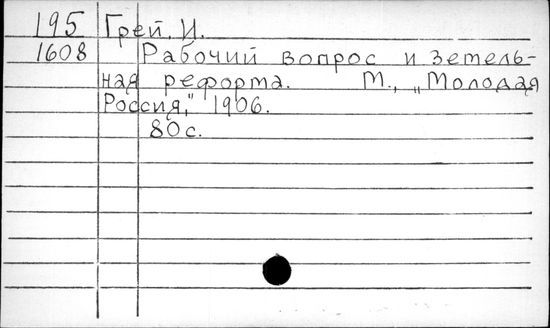 195 Грей. И.
1608 Рабочий вопрос и земель-
ная реформа. М., „Молодая
Россия", 1906.
80с.